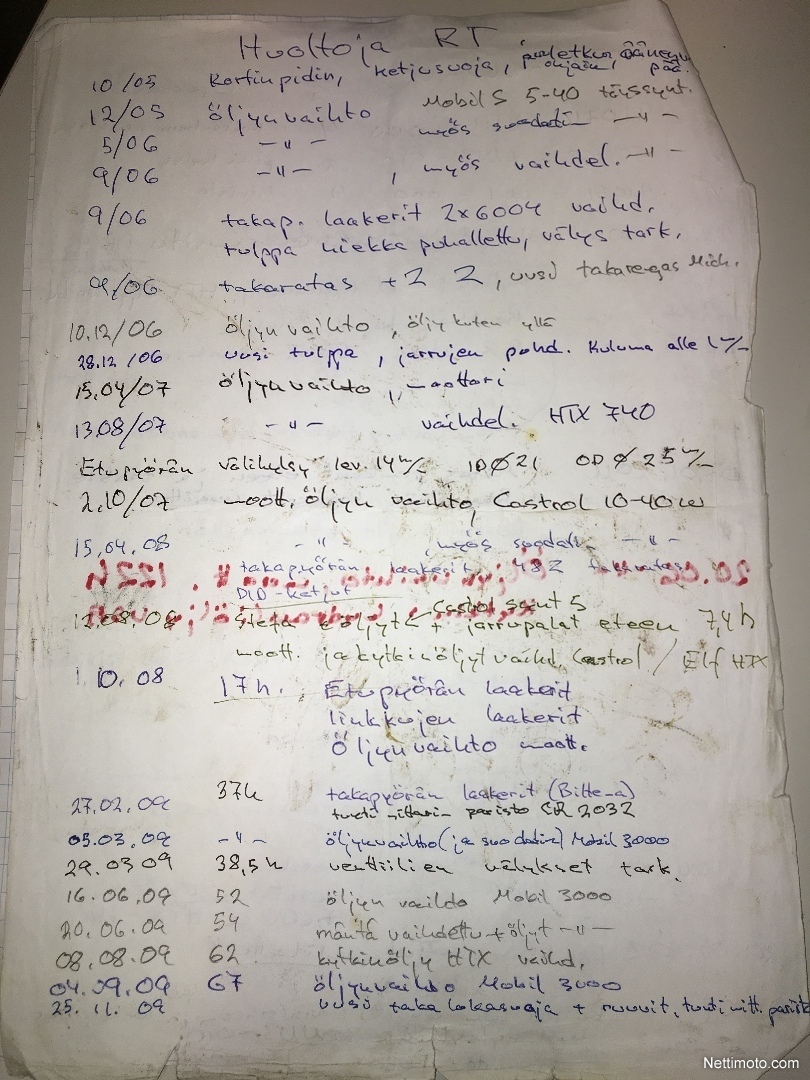 Huoltoja RT
10/05 Kortinpidin, ketjusuoja, ohjain, pää.
12/05 öljynvaihto Mobil S 5-40 täyssynt.
5/06 -"- myös suodatin -"-
9/06 -"- , myös vaihdel. -"-
9/06 takap. laakerit 2x6004 vaihd.
tulppa hiekka puhallettu, välys tark.
9/06 takaratas +2 Z, uusi takarengas Mich.
10.12/06 öljyn vaihto, öljy kuten yllä
28.12/06 uusi tulppa, jarrujen puhd. Kuluma alle
15.04/07 öljynvaihto, moottori
13.08/07 -"- vaihdel. HTX 740
Etupyörän välihylsy lev. 14 m/m ID Ø 21 OD Ø 25 m/m
2.10/07 moott. öljyn vaihto, Castrol 10-40w
15.04.08 -"- , myös suodatin -"-
takapyörän laakerit, 48Z takaratas
DID-ketjut
12.08.08 öljyt Castrol 5 + jarrupalat eteen 7,4 h
moott. ja kytkinöljyt vaihd, Castrol / Elf HTX
1.10.08 17h. Etupyörän laakerit
linkkujen laakerit
Öljynvaihto moott.
27.02.09 37h takapyörän laakerit (Biltema)
tuntimittarin paristo CR 2032
05.03.09 -"- öljynvaihto (ja suodatin) Mobil 3000
29.03.09 38,5h venttiilien välykset tark.
16.06.09 52 öljyn vaihto Mobil 3000
20.06.09 54 mäntä vaihdettu + öljyt -"-
08.08.09 62 kytkinöljy HTX vaihd.
04.09.09 67 öljynvaihto Mobil 3000
25.11.09 uusi taka lokasuoja + ruuvit, tuntimitt. parist
Nettimoto.com